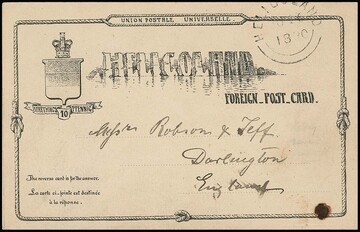 UNION POSTALE UNIVERSELLE.
HELIGOLAND
HELIGOLAND
FOREIGN_POST_CARD.
10 PFENNIG
Messrs Robson & Jeff.
Darlington
England
The reverse card is for the answer.
La carte ci-jointe est destinée
à la réponse.